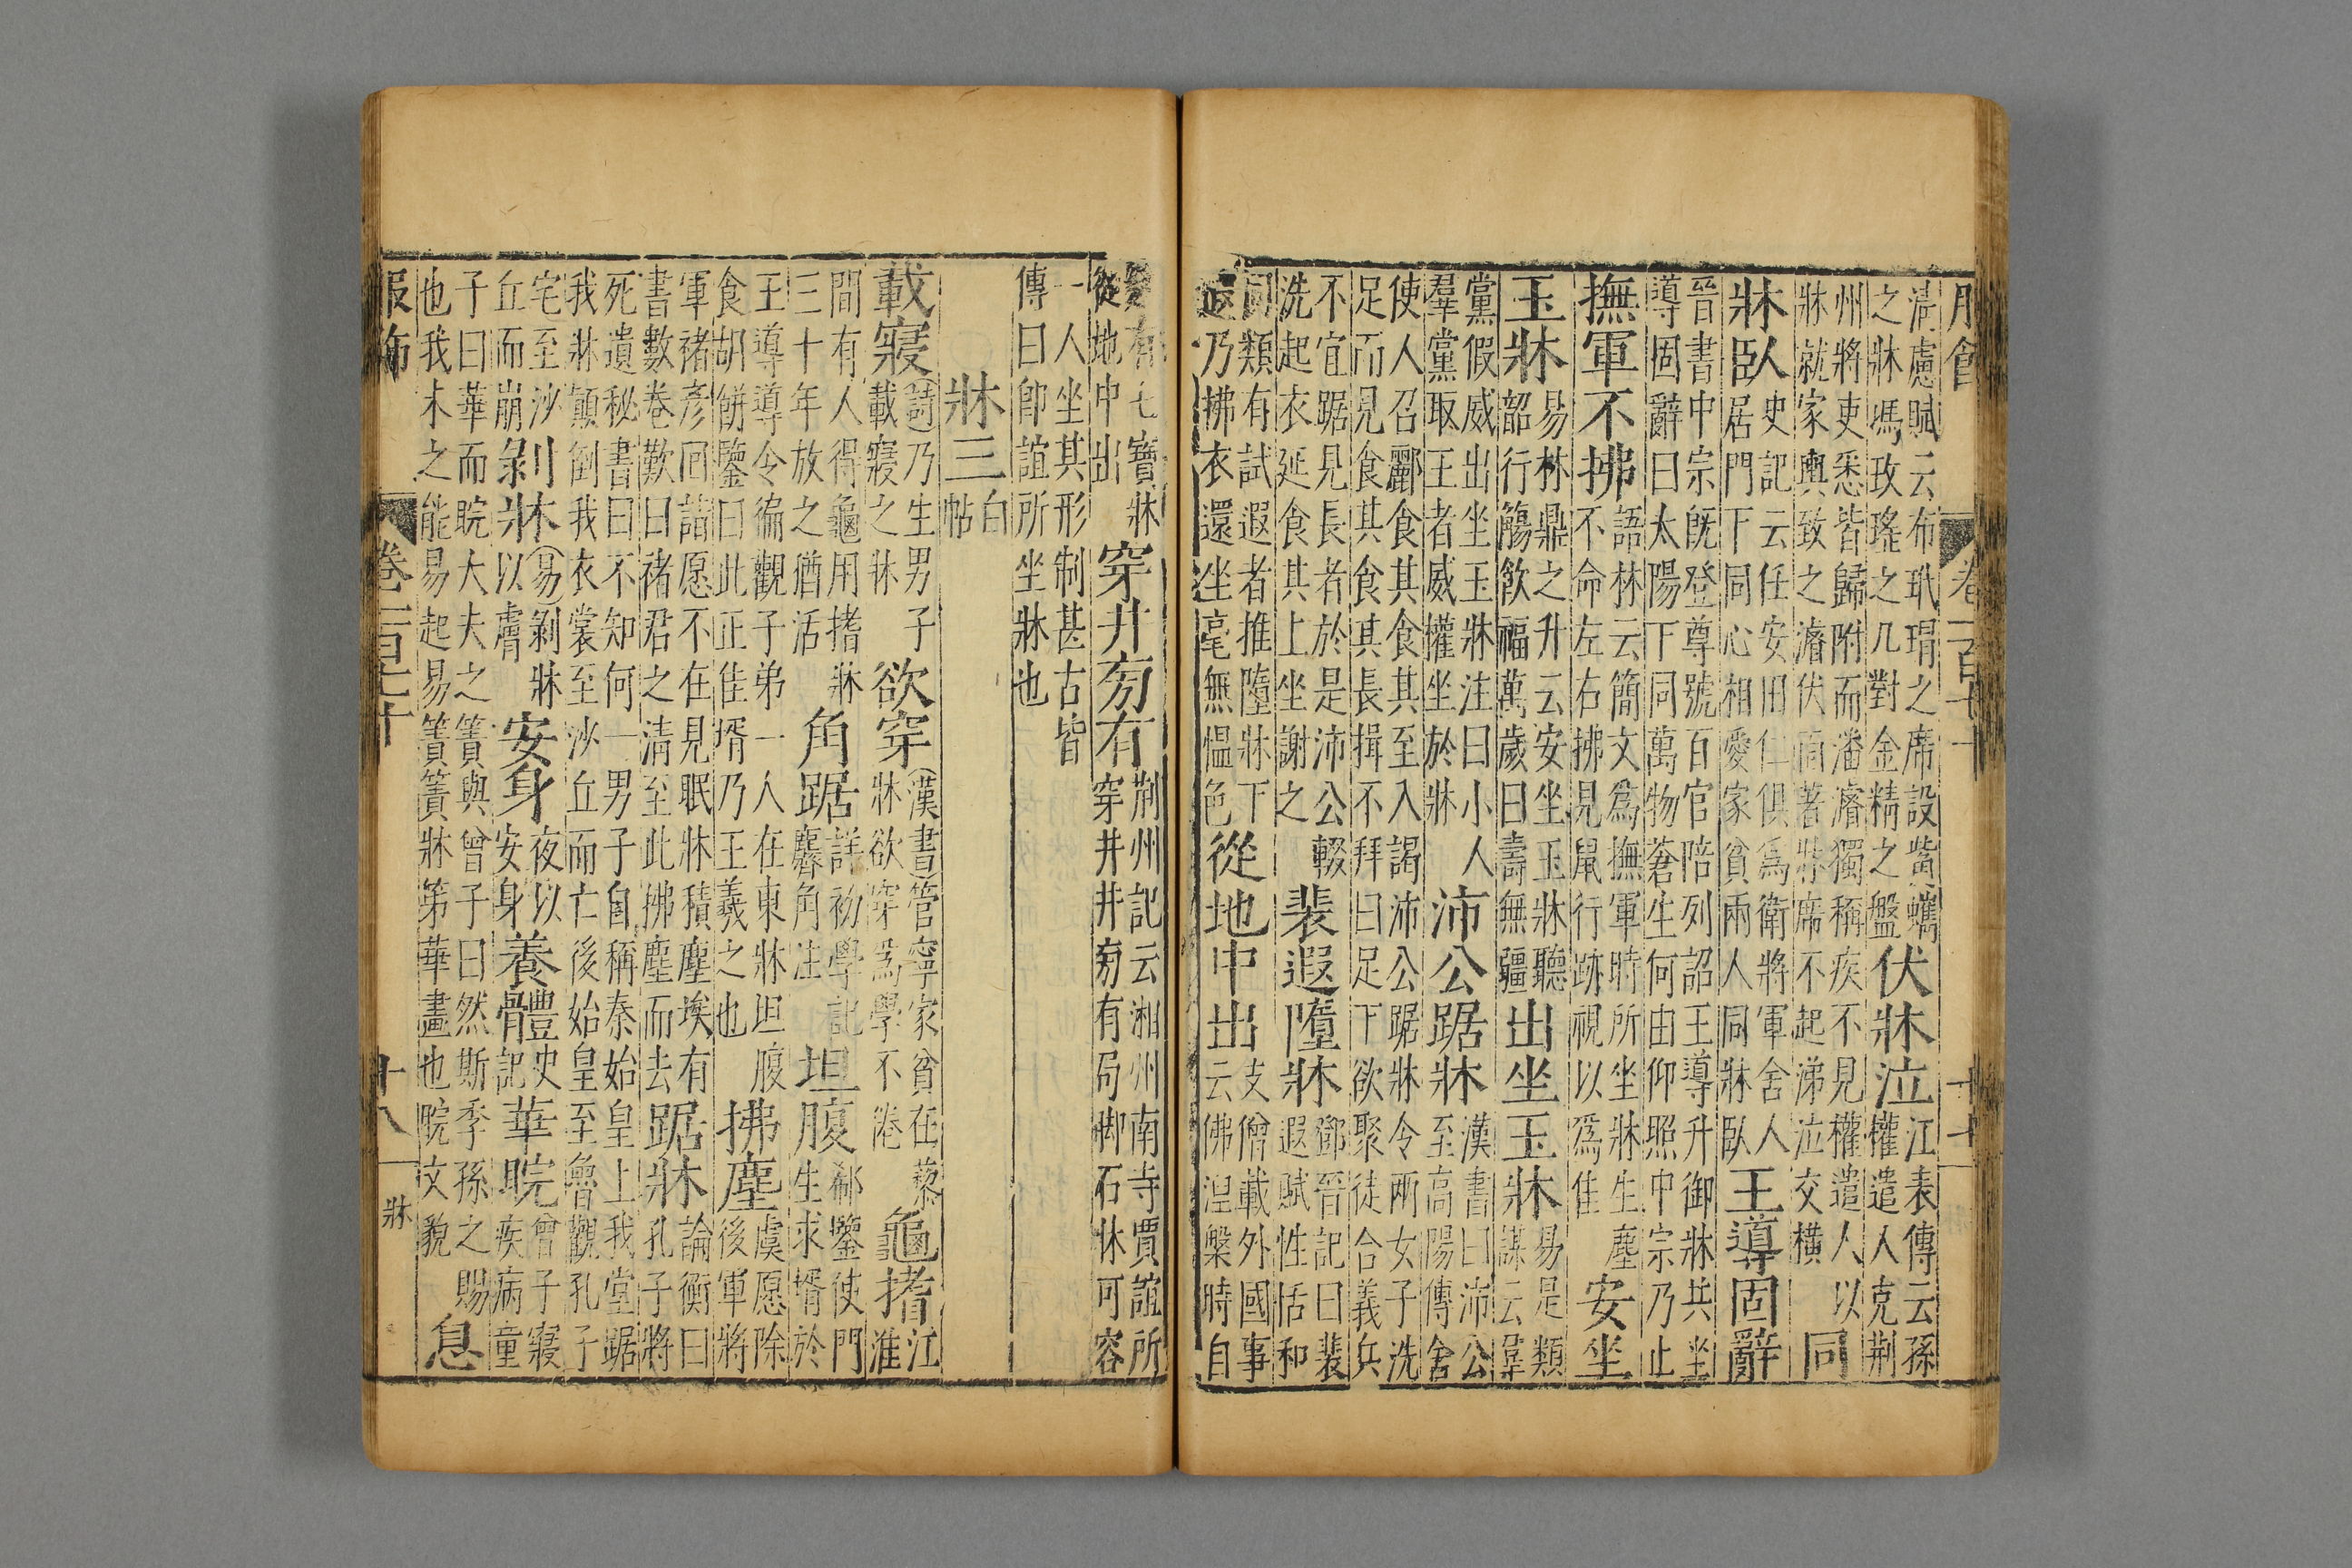 服飾 卷二百七十 十七
清慮賦云布玳瑁之席設觜蠵
之牀馮玫瑤之几對金精之盤
伏牀泣
江表傳云孫
權遣人克荆
州將吏悉皆歸附而潘濬獨稱疾不見權遣人以
牀就家輿致之濬伏面著牀席不起涕泣交橫
同
牀臥
史記云任安田仁俱爲衛將軍舍人
居門下同心相愛家貧兩人同牀臥
王導固辭
晉書中宗旣登尊號百官陪列詔王導升御牀共坐
導固辭曰太陽下同萬物蒼生何由仰照中宗乃止
撫軍不拂
語林云簡文爲撫軍時所坐牀生塵
不命左右拂見鼠行跡視以爲佳
安坐
玉牀
易林鼎之升云安坐玉牀聽
韶行觴飲福萬歲曰壽無疆
出坐玉牀
易是類
謀云羣
黨假威出坐玉牀注曰小人
羣黨取王者威權坐於牀
沛公踞牀
漢書曰沛公
至高陽傳舍
使人召酈食其食其至入謁沛公踞牀令兩女子洗
足而見食其食其長揖不拜曰足下欲聚徒合義兵
不宜踞見長者於是沛公輟
洗起衣延食其上坐謝之
裴遐墮牀
鄧晉記曰裴
遐賦性恬和
同類有試遐者推墮牀下
遐乃拂衣還坐毫無慍色
從地中出
支僧載外國事
云佛湼槃時自
有七寶牀
從地中出
穿井旁有
荆州記云湘州南寺賈誼所
穿井井旁有局脚石牀可容
一人坐其形制甚古皆
傳曰卽誼所坐牀也
牀三
白
帖
載寢
詩乃生男子
載寢之牀
欲穿
漢書管寧家貧在藜
牀欲穿爲學不倦
龜搘
江
淮
間有人得龜用搘牀
三十年放之猶活
角踞
詳初學記
麟角注
坦腹
郗鑒使門
生求壻於
王導導令徧觀子弟一人在東牀坦腹
食胡餅鑒曰此正佳壻乃王羲之也
拂塵
虞愿除
後軍將
軍褚彥回詣愿不在見眠牀積塵埃有
書數卷歎曰褚君之清至此拂塵而去
踞牀
論衡曰
孔子將
死遺秘書曰不知何一男子自稱秦始皇上我堂踞
我牀顚倒我衣裳至沙丘而亡後始皇至魯觀孔子
宅至沙
丘而崩
剝牀
易剝牀
以膚
安身
夜以
安身
養體
史
記
華睆
曾子寢
疾病童
子曰華而睆大夫之簀與曾子曰然斯季孫之賜
也我未之能易起易簀簀牀第華畫也睆文貌
息
服飾 卷二百七十 十八 牀